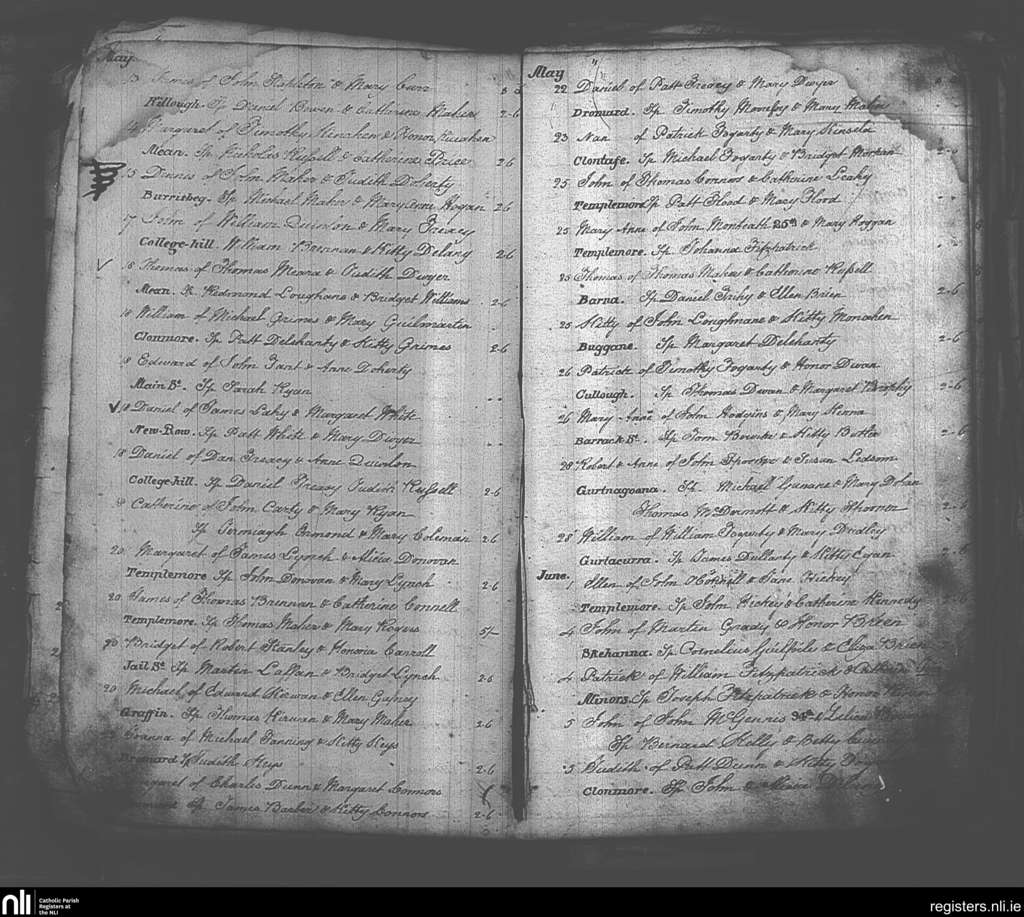 May
13 James of John Stapleton & Mary Carr
Killough. Sp Daniel Bowen & Catherine Maher 2-6
Margaret of Timothy Kinahan & Honor
Mean. Sp Nicholas Russell & Catherine Price 2-6
15 Dennis of John Maher & Judith Doherty
Burrisbeg. Sp Michael Maher & Maryanne Hogan 2-6
17 John of William Quinlon & Mary Treacy
College-hill. William Brennan & Kitty Delany 2-6
18 Thomas of Thomas Meara & Judith Dwyer
Mean. Sp Redmond Loughane & Bridget Williams 2-6
18 William of Michael Grimes & Mary Guilmartin
Clonmore. Sp Patt Delehanty & Kitty Grimes 2-6
18 Edward of John Fant & Anne Doherty
Main St. Sp Sarah Ryan
18 Daniel of James Lahy & Margaret White
New-Row. Sp Patt White & Mary Dwyer
18 Daniel of Dan Treacy & Anne Quinlon
College-hill. Sp Daniel Treacy Judith Russell 2-6
Catherine of John Carty & Mary Ryan
Sp Jermiagh Ormond & Mary Coleman 2-6
20 Margaret of James Lynch & Alicia Donovan
Templemore Sp John Donovan & Mary Lynch 2-6
20 James of Thomas Brennan & Catherine Connell
Templemore. Sp Thomas Maher & Mary Rogers 5/-
20 Bridget of Robert Stanley & Honoria Carroll
Jail St. Sp Martin Laffan & Bridget Lynch 2-6
20 Michael of Edward Kirwan & Ellen Guiney
Graffin. Sp Thomas Kirwan & Mary Maher 2-6
of Michael Fanning & Kitty Keys
Dromard Sp Judith Keys 2-6
Margaret of Charles Dunn & Margaret Connors
Sp James Barber & Kitty Connors 2-6
May
22 Daniel of Patt Treacy & Mary Dwyer
Dromard. Sp Timothy & Mary Maher
23 Nan of Patrick Fogarty & Mary Kinsela
Clontafe. Sp Michael Fogarty & Bridget Morgan
25 John of Thomas Connors & Catherine Leahy
Templemore Sp Patt Flood & Macy Flood
25 Mary Anne of John Monteath 25th & Mary Hoggan
Templemore. Sp Johanna Fitzpatrick
25 Thomas of Thomas Maher & Catherine Russell
Barna. Sp Daniel & Ellen Brien 2-6
25 Kitty of John Loughnane & Kitty Monahen
Buggane. Sp Margaret Delehanty 2-6
26 Patrick of Timothy Fogarty & Honor Dwan
Cullough. Sp Thomas Dwan & Margaret Brophy 2-6
26 Mary Anne of John Hodgins & Mary Kenna
Barrack St. Sp Tom & Kitty Butler 2-6
28 Robert & Anne of John & Susan Ledsom
Gurtnagoona. Sp Michael & Mary Dolan
Thomas McDermott & Kitty
28 William of William Fogarty & Mary Dudley
Gurtacurra. Sp James Dullarty & Kitty Egan
June. 1 Ellen of John O'Connell & Jane Hickey
Templemore. Sp John Hickey & Catherine Kennedy
4 John of Martin Grady & Honor Breen
Brehanna. Sp Cornelius Guilfoile & Eliza Brien
4 Patrick of William Fitzpatrick &
Minors. Sp Joseph Fitzpatrick & Honor Kirwan
5 John of John McGennis &
Sp Bernard Kelly & Betty
5 Judith of Patt Dunn & Kitty
Clonmore. Sp John & Alicia
nli Catholic Parish
Registers at
the NLI
registers.nli.ie